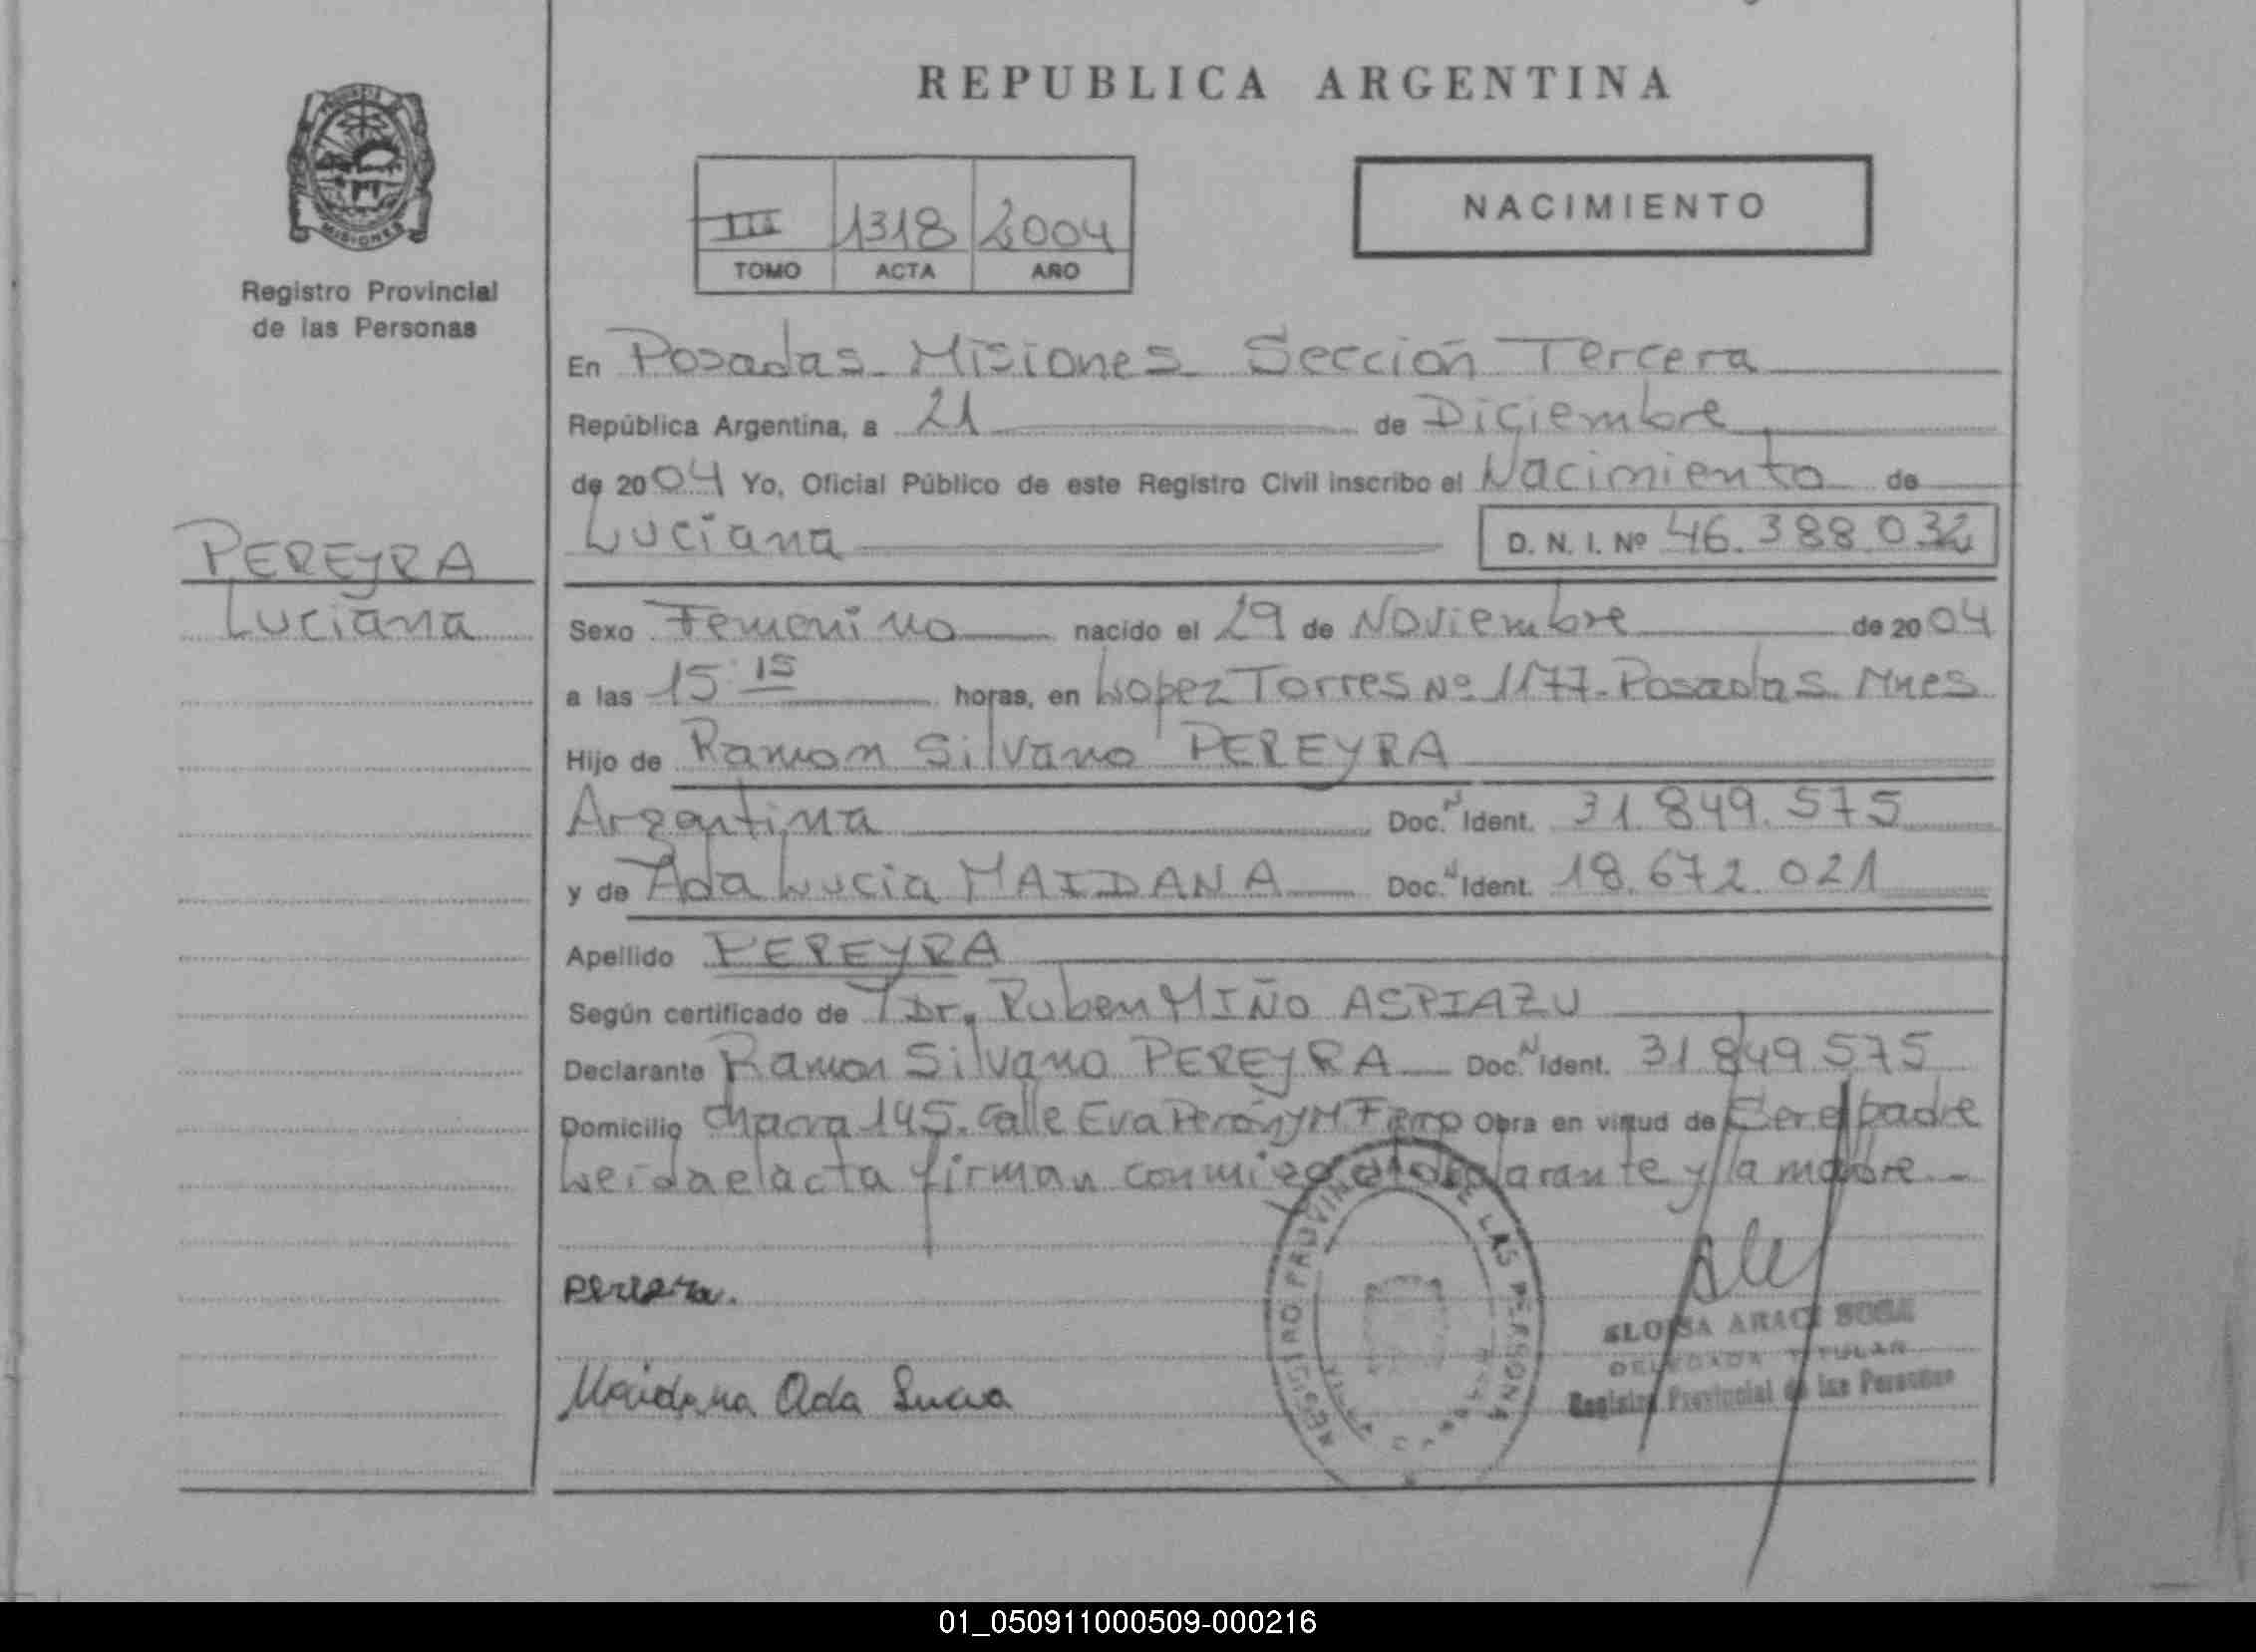 REPUBLICA ARGENTINA
MISIONES
Registro Provincial
de las Personas
III 1318 2004
TOMO ACTA AÑO
NACIMIENTO
En Posadas Misiones Sección Tercera
República Argentina, a 21 de Diciembre
de 2004 Yo, Oficial Público de este Registro Civil inscribo el Nacimiento de
Luciana D. N. I. Nº 46.388.032
PEREYRA
Luciana
Sexo Femenino nacido el 29 de Noviembre de 2004
a las 15:15 horas, en Lopez Torres Nº 1177-Posadas. Mnes
Hijo de Ramon Silvano PEREYRA
Argentina Doc. N Ident. 31.849.575
y de Ada Lucia MAIDANA Doc. N Ident. 18.672.021
Apellido PEREYRA
Según certificado de Dr. Ruben MIÑO ASPIAZU
Declarante Ramon Silvano PEREYRA Doc. N Ident. 31.849.575
Domicilio Chacra 145. Calle Eva Perón y M Obra en virtud de Ser el padre
Leida el acta firman conmigo el declarante y la madre -
Maidana Ada Lucia
REGISTRO PROVINCIAL DE LAS PERSONAS
DELEGADA TITULAR
Registro Provincial de las Personas
01_050911000509-000216